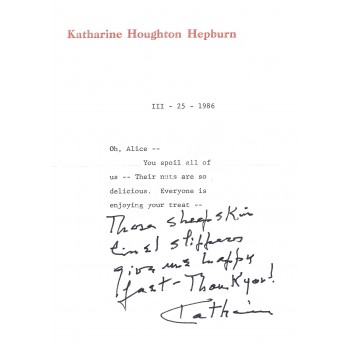 Katharine Houghton Hepburn
III - 25 - 1986
Oh, Alice --
You spoil all of
us -- Their nuts are so
delicious. Everyone is
enjoying your treat --
Those sheepskin
lined slippers
give me happy
feet - Thank you!